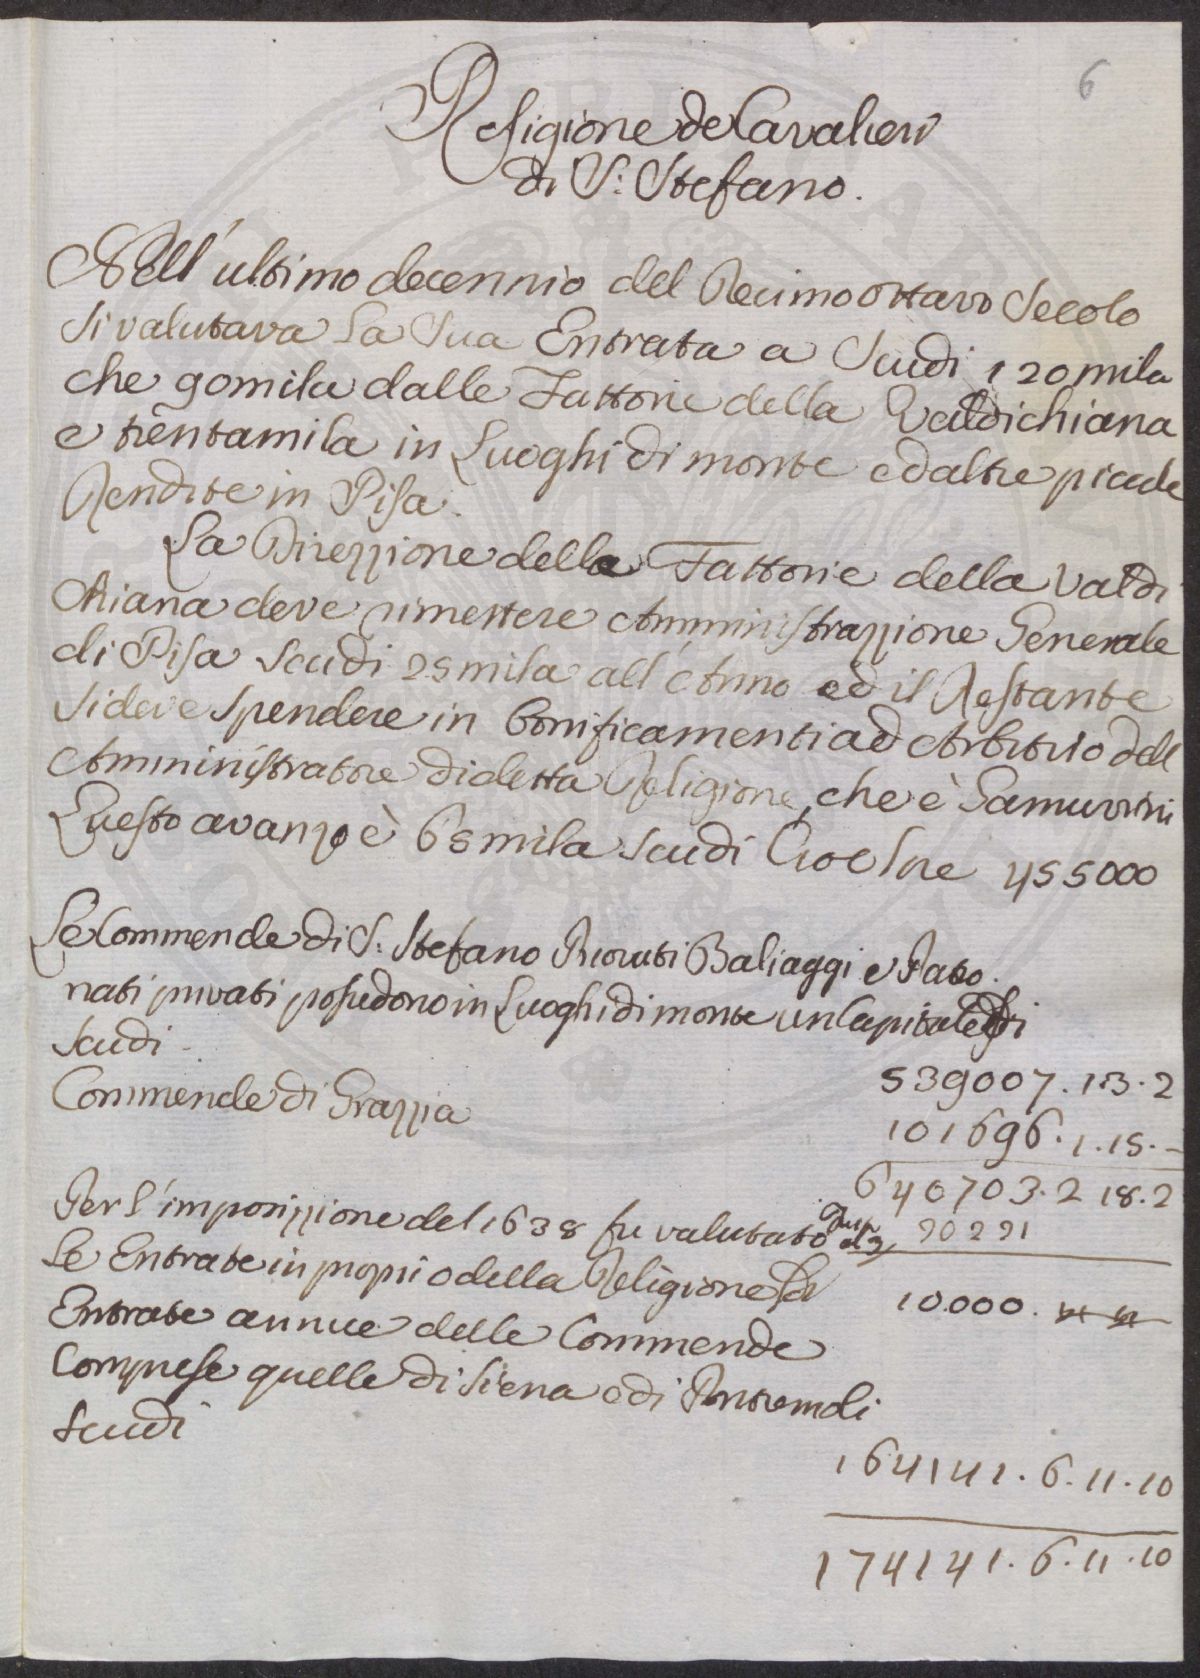 6
Religione de Cavalieri
di S: Stefano.
Nell'ultimo decennio del Decimo ottavo Secolo
si valutava la sua Entrata a Scudi 120 mila
che 90 mila dalle Fattorie della Valdichiana
e trentamila in Luoghi di monte ed altre piccole
Rendite in Pisa.
La Direzzione delle Fattorie della Valdi
Chiana deve rimettere Amministrazzione Generale
di Pisa Scudi 25 mila all'Anno ed il Restante
si deve spendere in bonificamenti ad Arbitrio dell
Amministratore di detta Religione, che è Gamurrini
Questo avanzo è 65 mila scudi Cioe lire 455000
Le Commende di S: Stefano Priorati Baliaggi e Patro
nati privati possiedono in Luoghi di monte un Capitale di
Scudi
539007.13.2
Commende di Grazzia
101696.1.15.-
640703.2 18.2
Per l'imposizzione del 1638 fu valutato
90291
Le Entrate in proprio della Religione
10.000.
Entrate annue delle Commende
Comprese quelle di Siena e di Pontremoli
Scudi
164141.6.11.10
174141.6.11.10